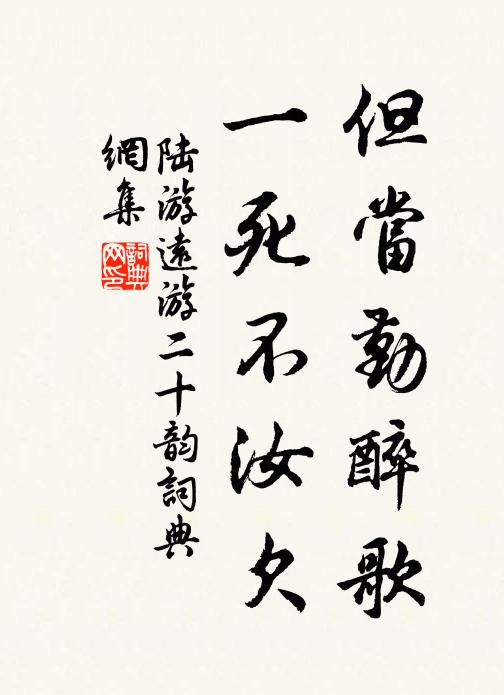 但當勤醉歌
一死不汝欠
陆游遠游二十韵詞典
網集
詞典网印